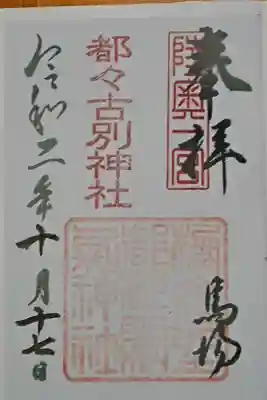 奉拝
陸奥一宮
馬場
都々古別神社
令和二年十月十七日